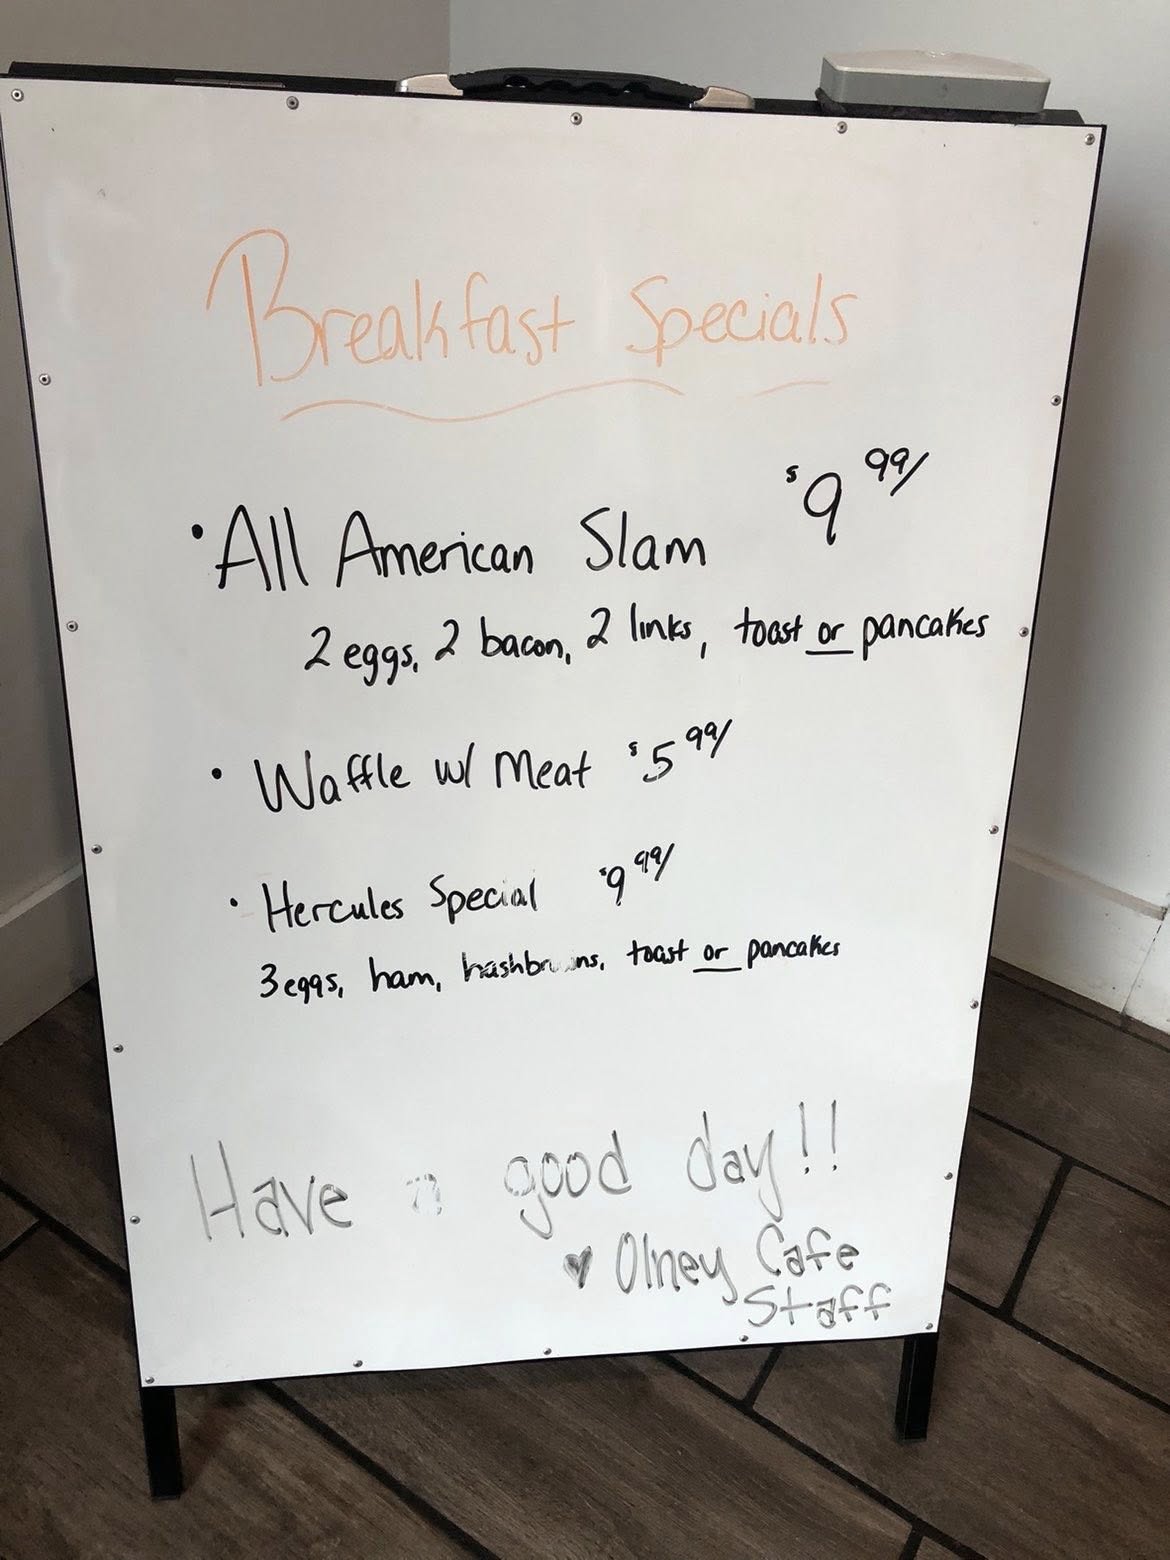 Breakfast Specials
• All American Slam $9 99/
2 eggs, 2 bacon, 2 links, toast or pancakes
• Waffle w/ Meat $5 99/
• Hercules Special $9 99/
3 eggs, ham, hashbrowns, toast or pancakes
Have a good day!!
♥ Olney Cafe
Staff